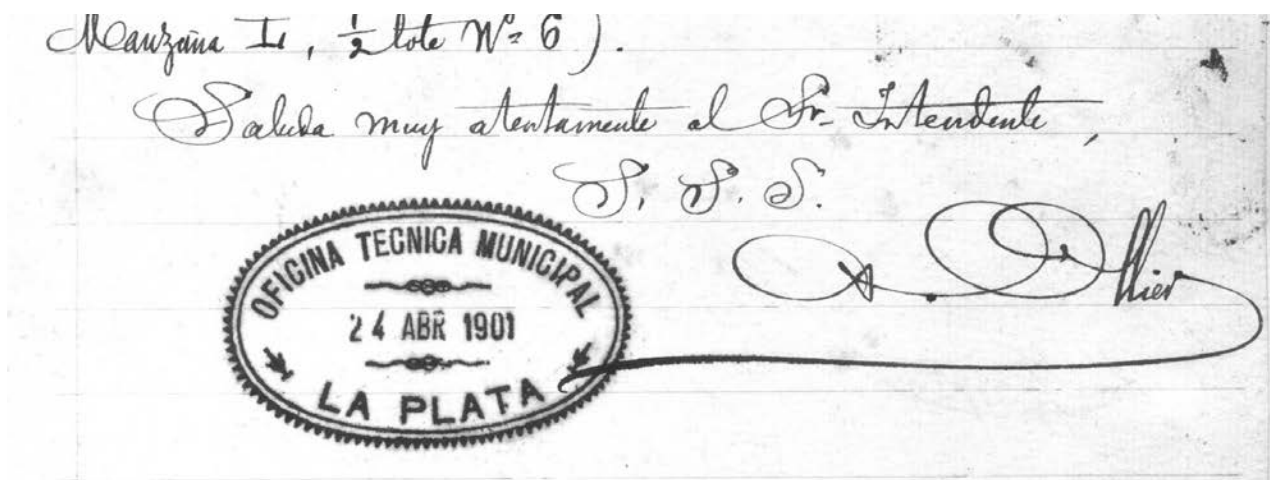 Manzana I, ½ lote Nº 6).
Saluda muy atentamente al Sr. Intendente,
S. S. S.
OFICINA TECNICA MUNICIPAL
24 ABR 1901
LA PLATA
A. Ollier